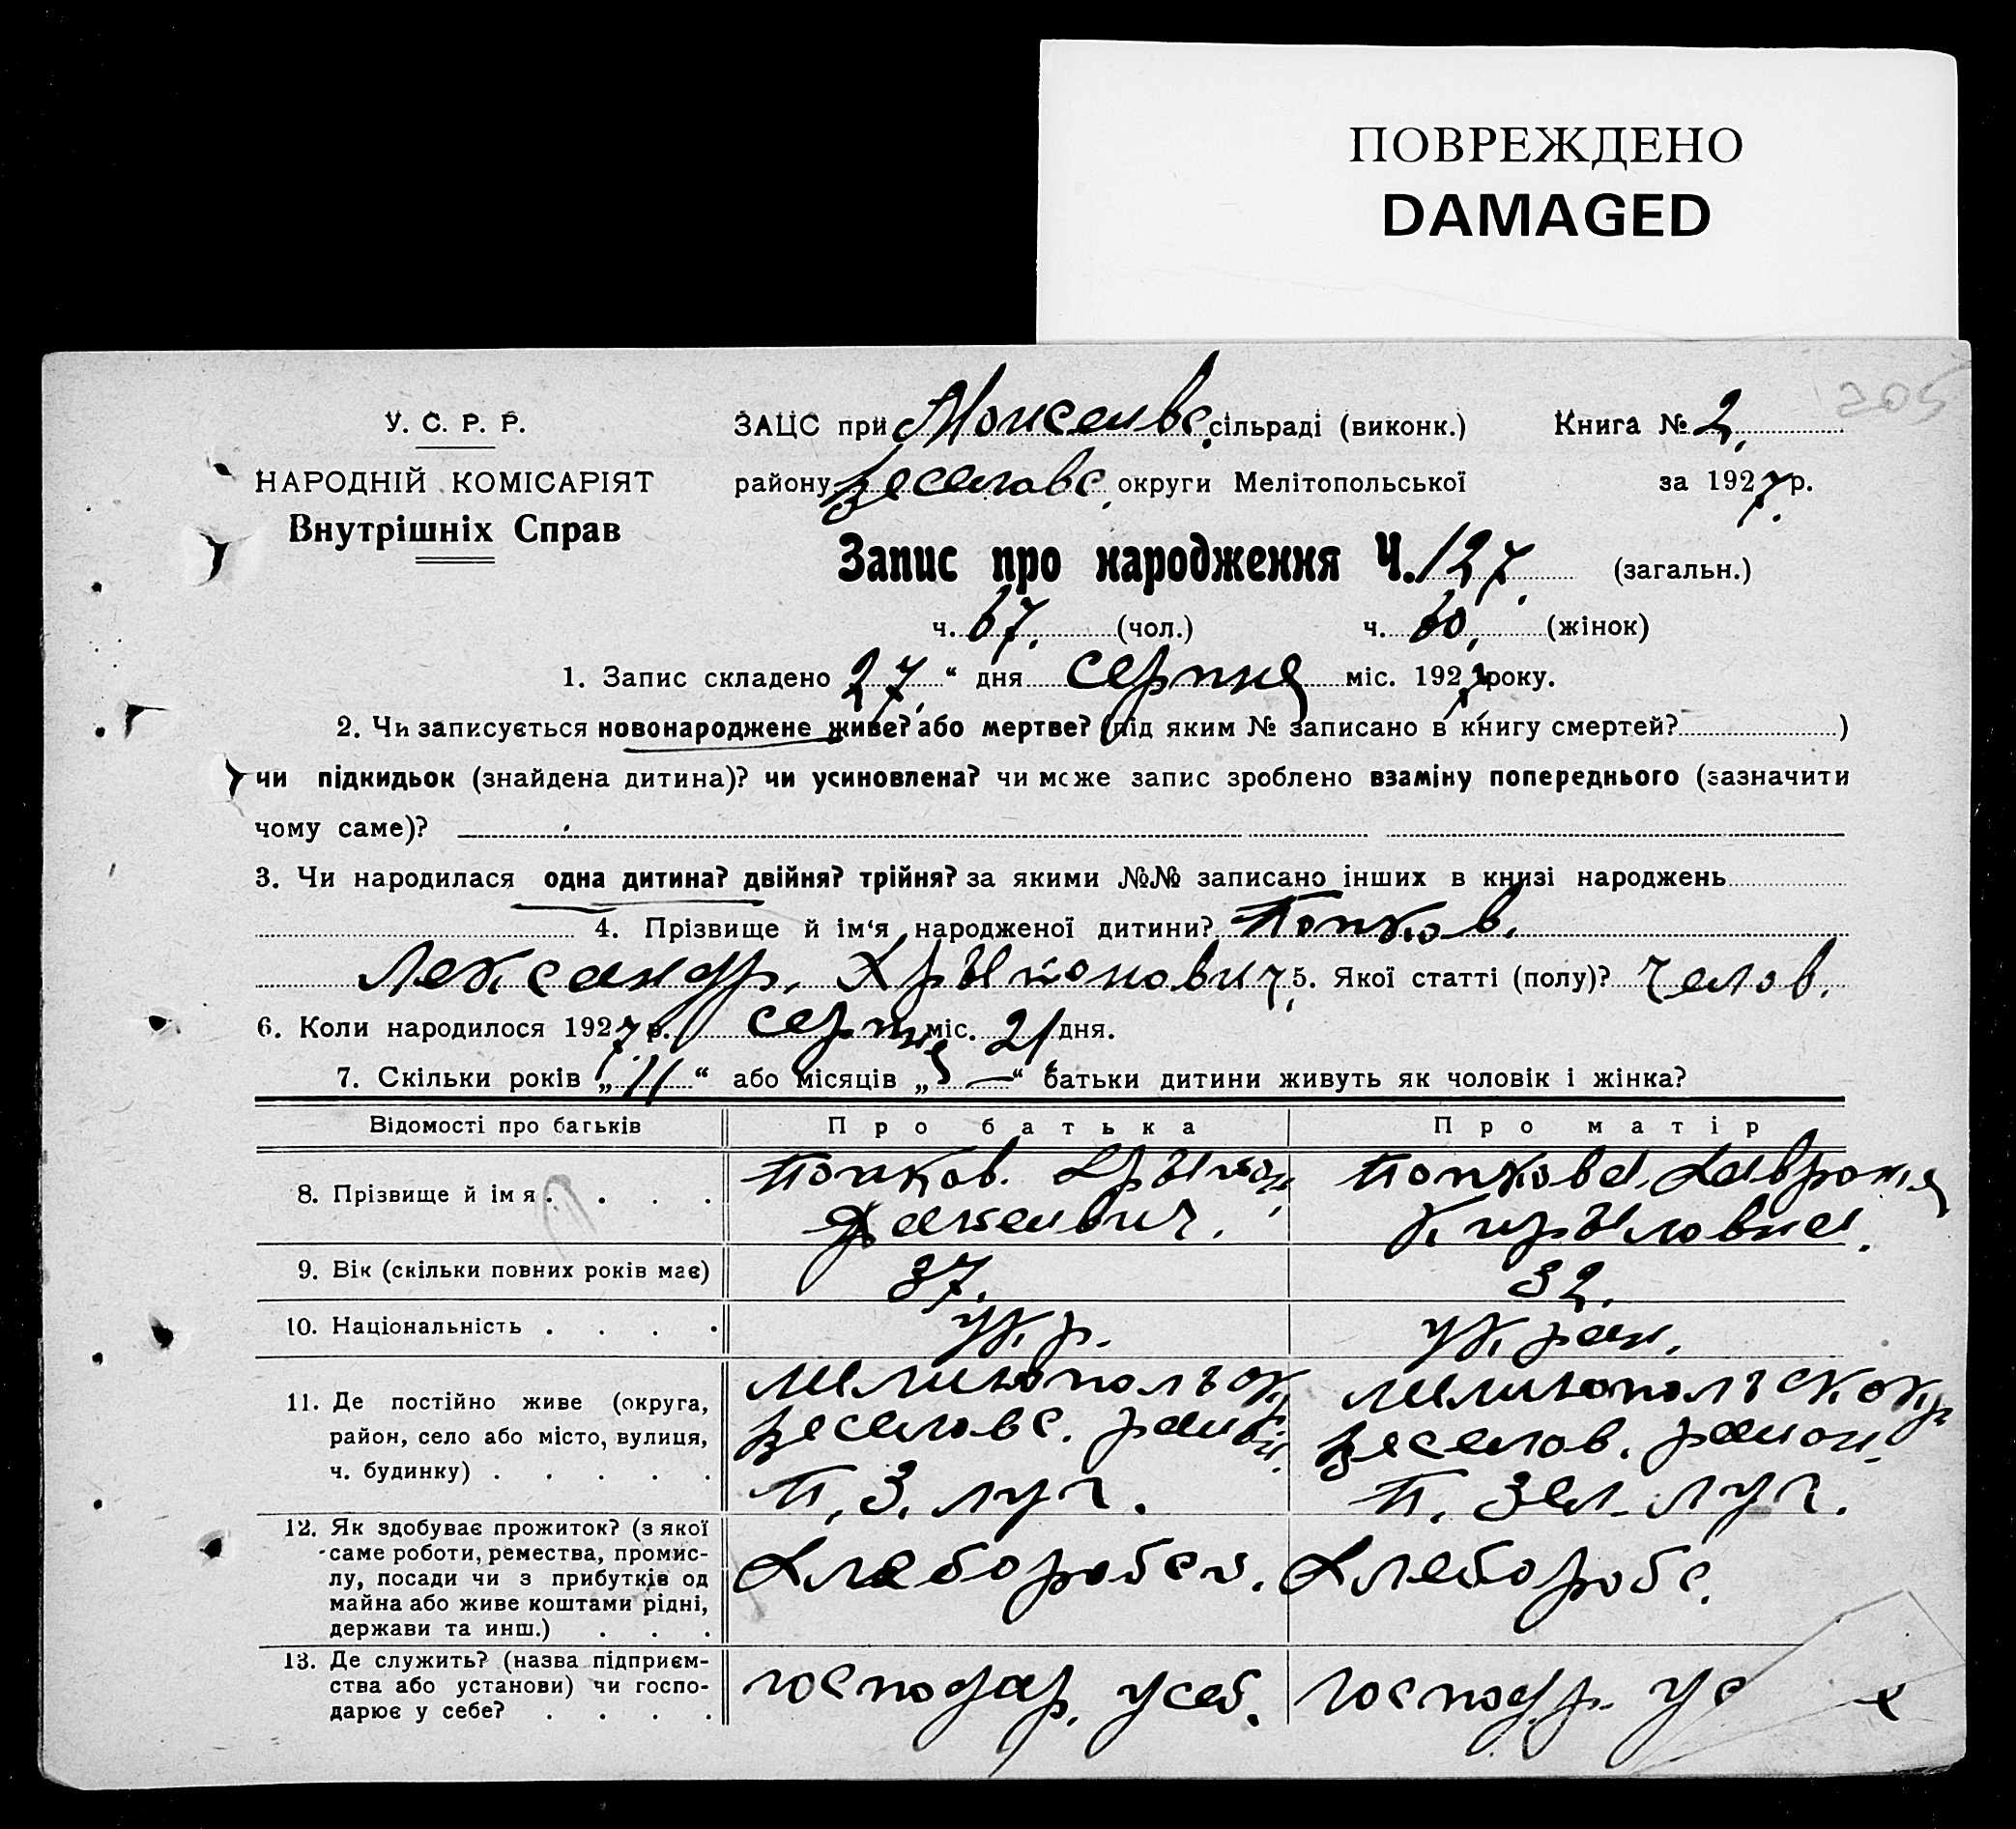 ПОВРЕЖДЕНО
DAMAGED
205
У. С. Р. Р.
НАРОДНІЙ КОМІСАРІЯТ
Внутрішніх Справ
ЗАЦС при Моисеивс. сільраді (виконк.) Книга № 2.
району Веселовс. округи Мелітопольської за 1927 р.
Запис про народження Ч. 127. (загальн.)
ч. 67. (чол.) ч. 60. (жінок)
1. Запис складено 27 “ дня серпня міс. 1927 року.
2. Чи записується новонароджене живе? або мертве? (під яким № записано в книгу смертей? )
чи підкидьок (знайдена дитина)? чи усиновлена? чи може запис зроблено взаміну попереднього (зазначити
чому саме)?
3. Чи народилася одна дитина? двійня? трійня? за якими №№ записано інших в книзі народжень
4. Прізвище й ім‘я народженої дитини? Попков.
Лександр. 5. Якої статті (полу)? челов.
6. Коли народилося 1927 р. серпня міс. 21 дня.
7. Скільки років „ 11 “ або місяців „ — “ батьки дитини живуть як чоловік і жінка?
Відомості про батьків Про батька Про матір
8. Прізвище й імя . . . . Попков. Попкова. Хавроня
Кирыловна.
9. Вік (скільки повних років має) 37. 32.
10. Національність . . . . Укр. Украи.
11. Де постійно живе (округа, Мелитопольск Мелитопольск окр
район, село або місто, вулиця, Веселовс. район. Веселов. район.
ч. будинку) . . . . . П. З. луг. П. Зел. луг.
12. Як здобуває прожиток? (з якої
саме роботи, ремества, промис-
лу, посади чи з прибутків од Хлеборобсз. Хлеборобс.
майна або живе коштами рідні,
держави та инш.) . . .
13. Де служить? (назва підприєм-
ства або установи) чи госпо- господар. усеб. господр. ус
дарює у себе? . . . .